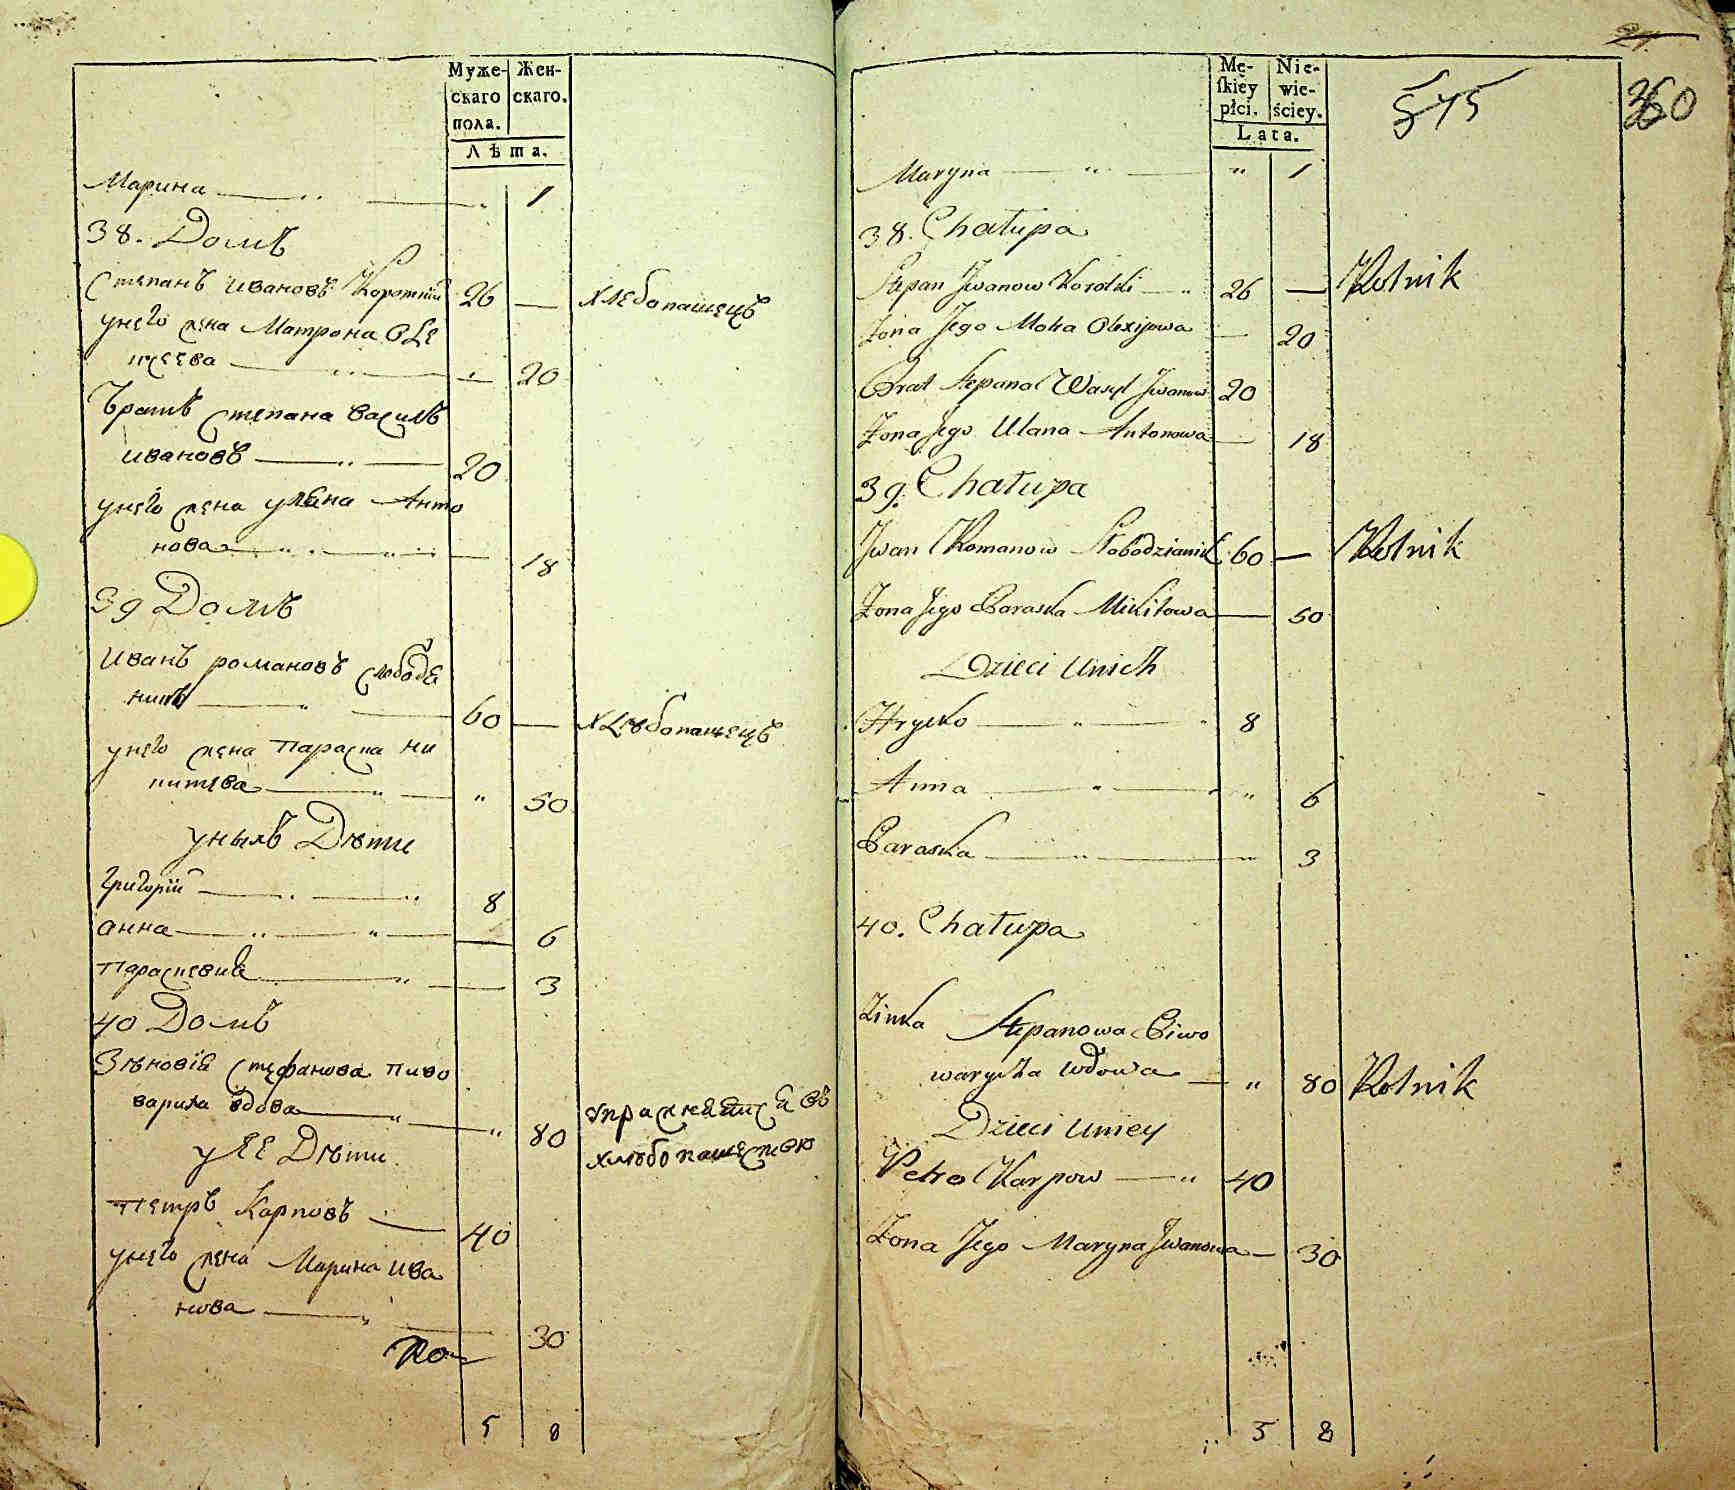 Муже-
скаго
пола.
Жен-
скаго.
Лѣта.
Марина 1
38. Домъ
Степанъ Ивановъ Короткій 26 — хлебопашецъ
унего жена Матрона Оле
ксеева 20
Братъ Степана Василь
Ивановъ 20
унего жена Уляна Анто
нова 18
39 Домъ
Иванъ Романовъ Слободя
никъ 60 — хлебопашецъ
унего жена Параска Ни
китева " 50
уныхъ Дѣти
Григорій 8
Анна 6
Параскевия 3
40 Домъ
Зѣновія Стефанова Пиво
вариха вдова " 80 упражняится въ
хлѣбопашествѣ
уее Дѣти
Петръ Карповъ 40
унего жена Марина Ива
нова 30
5 8
21
Mę-
skiey
płci.
Nie-
wie-
ściey.
Lata.
575
360
Maryna " 1
38. Chałupa
Stepan Iwanow Korotki 26 — Rolnik
Żona Jego Motra Olexijowa 20
Brat Stepana Wasyl Iwanow 20
Żona Jego Ulana Antonowa 18
39. Chałupa
Iwan Romanow Słobodzianik 60 — Rolnik
Żona Jego Paraska Mikitowa 50
Dzieci Unich
Hrycko 8
Anna " 6
Paraska " 3
40. Chałupa
Zinka Stepanowa Piwo
warycha Wdowa " 80 Rolnik
Dzieci Uniey
Petro Karpow 40
Żona Jego Maryna Iwanowa 30
5 8